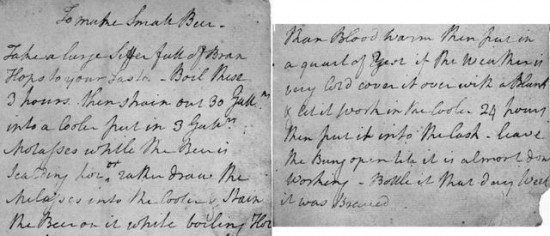 To make Small Beer -
Take a large Siffer full of Bran
Hops to your Taste - Boil these
3 hours. then strain out 30 Gallns
into a Cooler put in 3 Gallns
Molasses while the Beer is
Scalding hot or rather draw the
Molasses into the Cooler & Strain
the Beer on it while boiling Hot
than Blood warm then put in
a quart of Yest if the Weather is
very Cold cover it over with a Blank
& let it work in the Cooler 24 hours
then put it into the Cask - leave
the Bung open till it is almost don
Working - Bottle it that day Week
it was Brewed